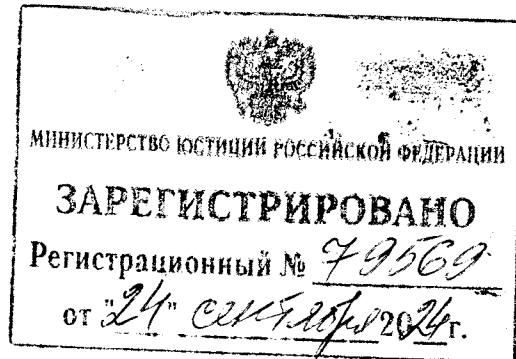 МИНИСТЕРСТВО ЮСТИЦИИ РОССИЙСКОЙ ФЕДЕРАЦИИ
ЗАРЕГИСТРИРОВАНО
Регистрационный № 79569
от "24" сентября 2024г.